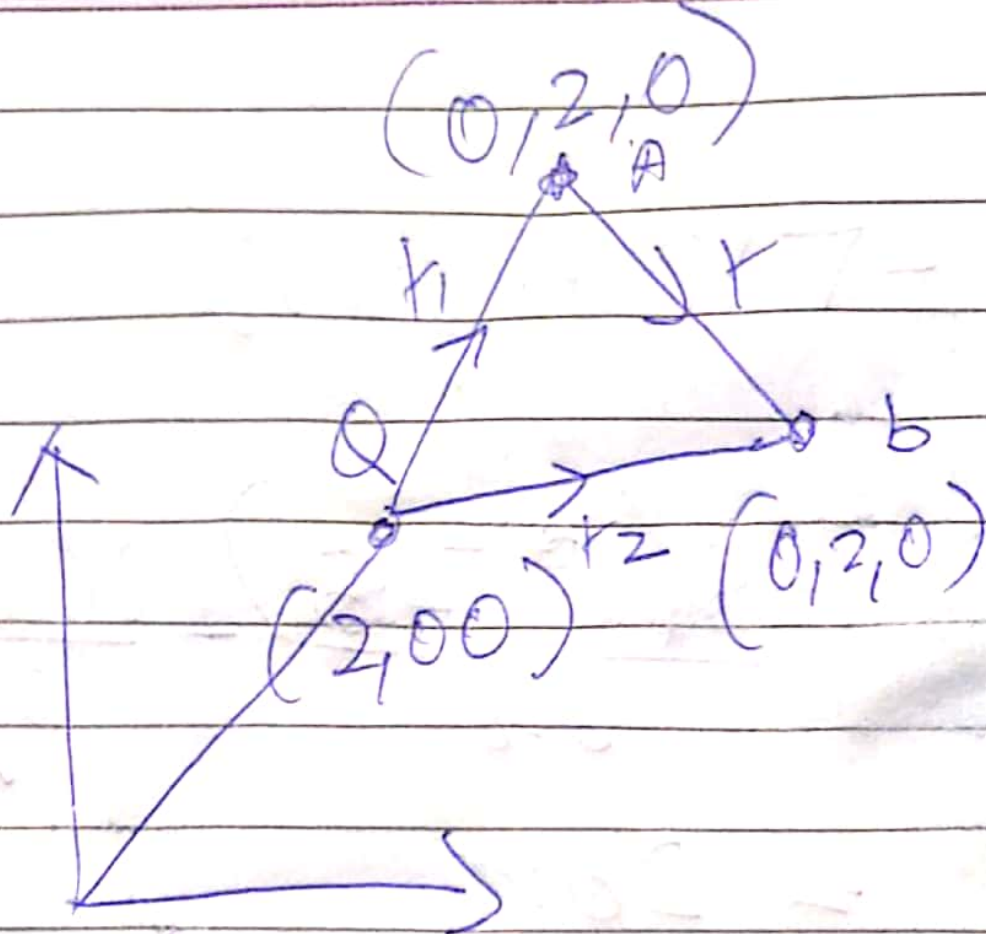 (0,2,0)
A
r1
r
Q
b
r2
(0,2,0)
(2,00)